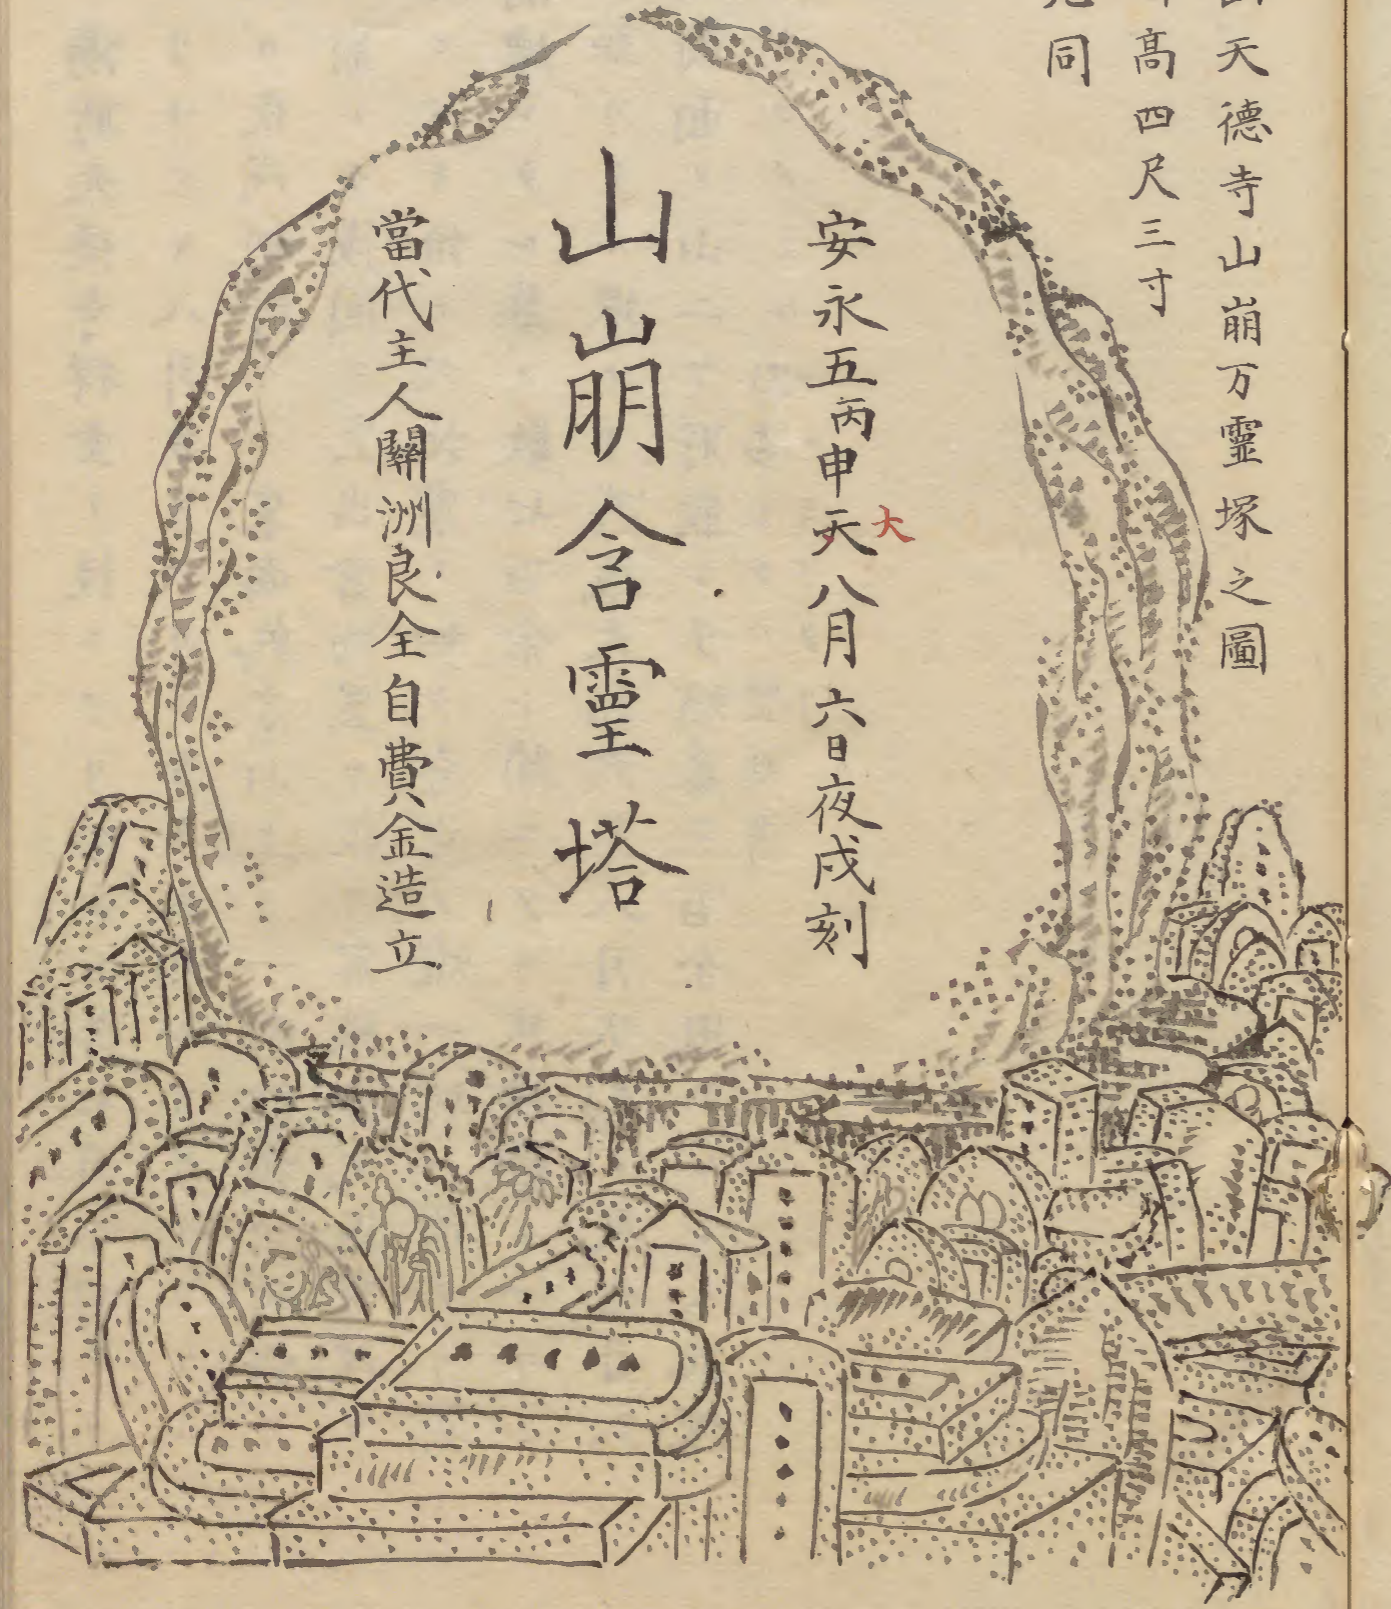 天德寺山崩万霊塚之圖
高四尺三寸
同
安永五丙申天八月六日夜戌刻
大
山崩含霊塔
當代主人關洲良全自費金造立